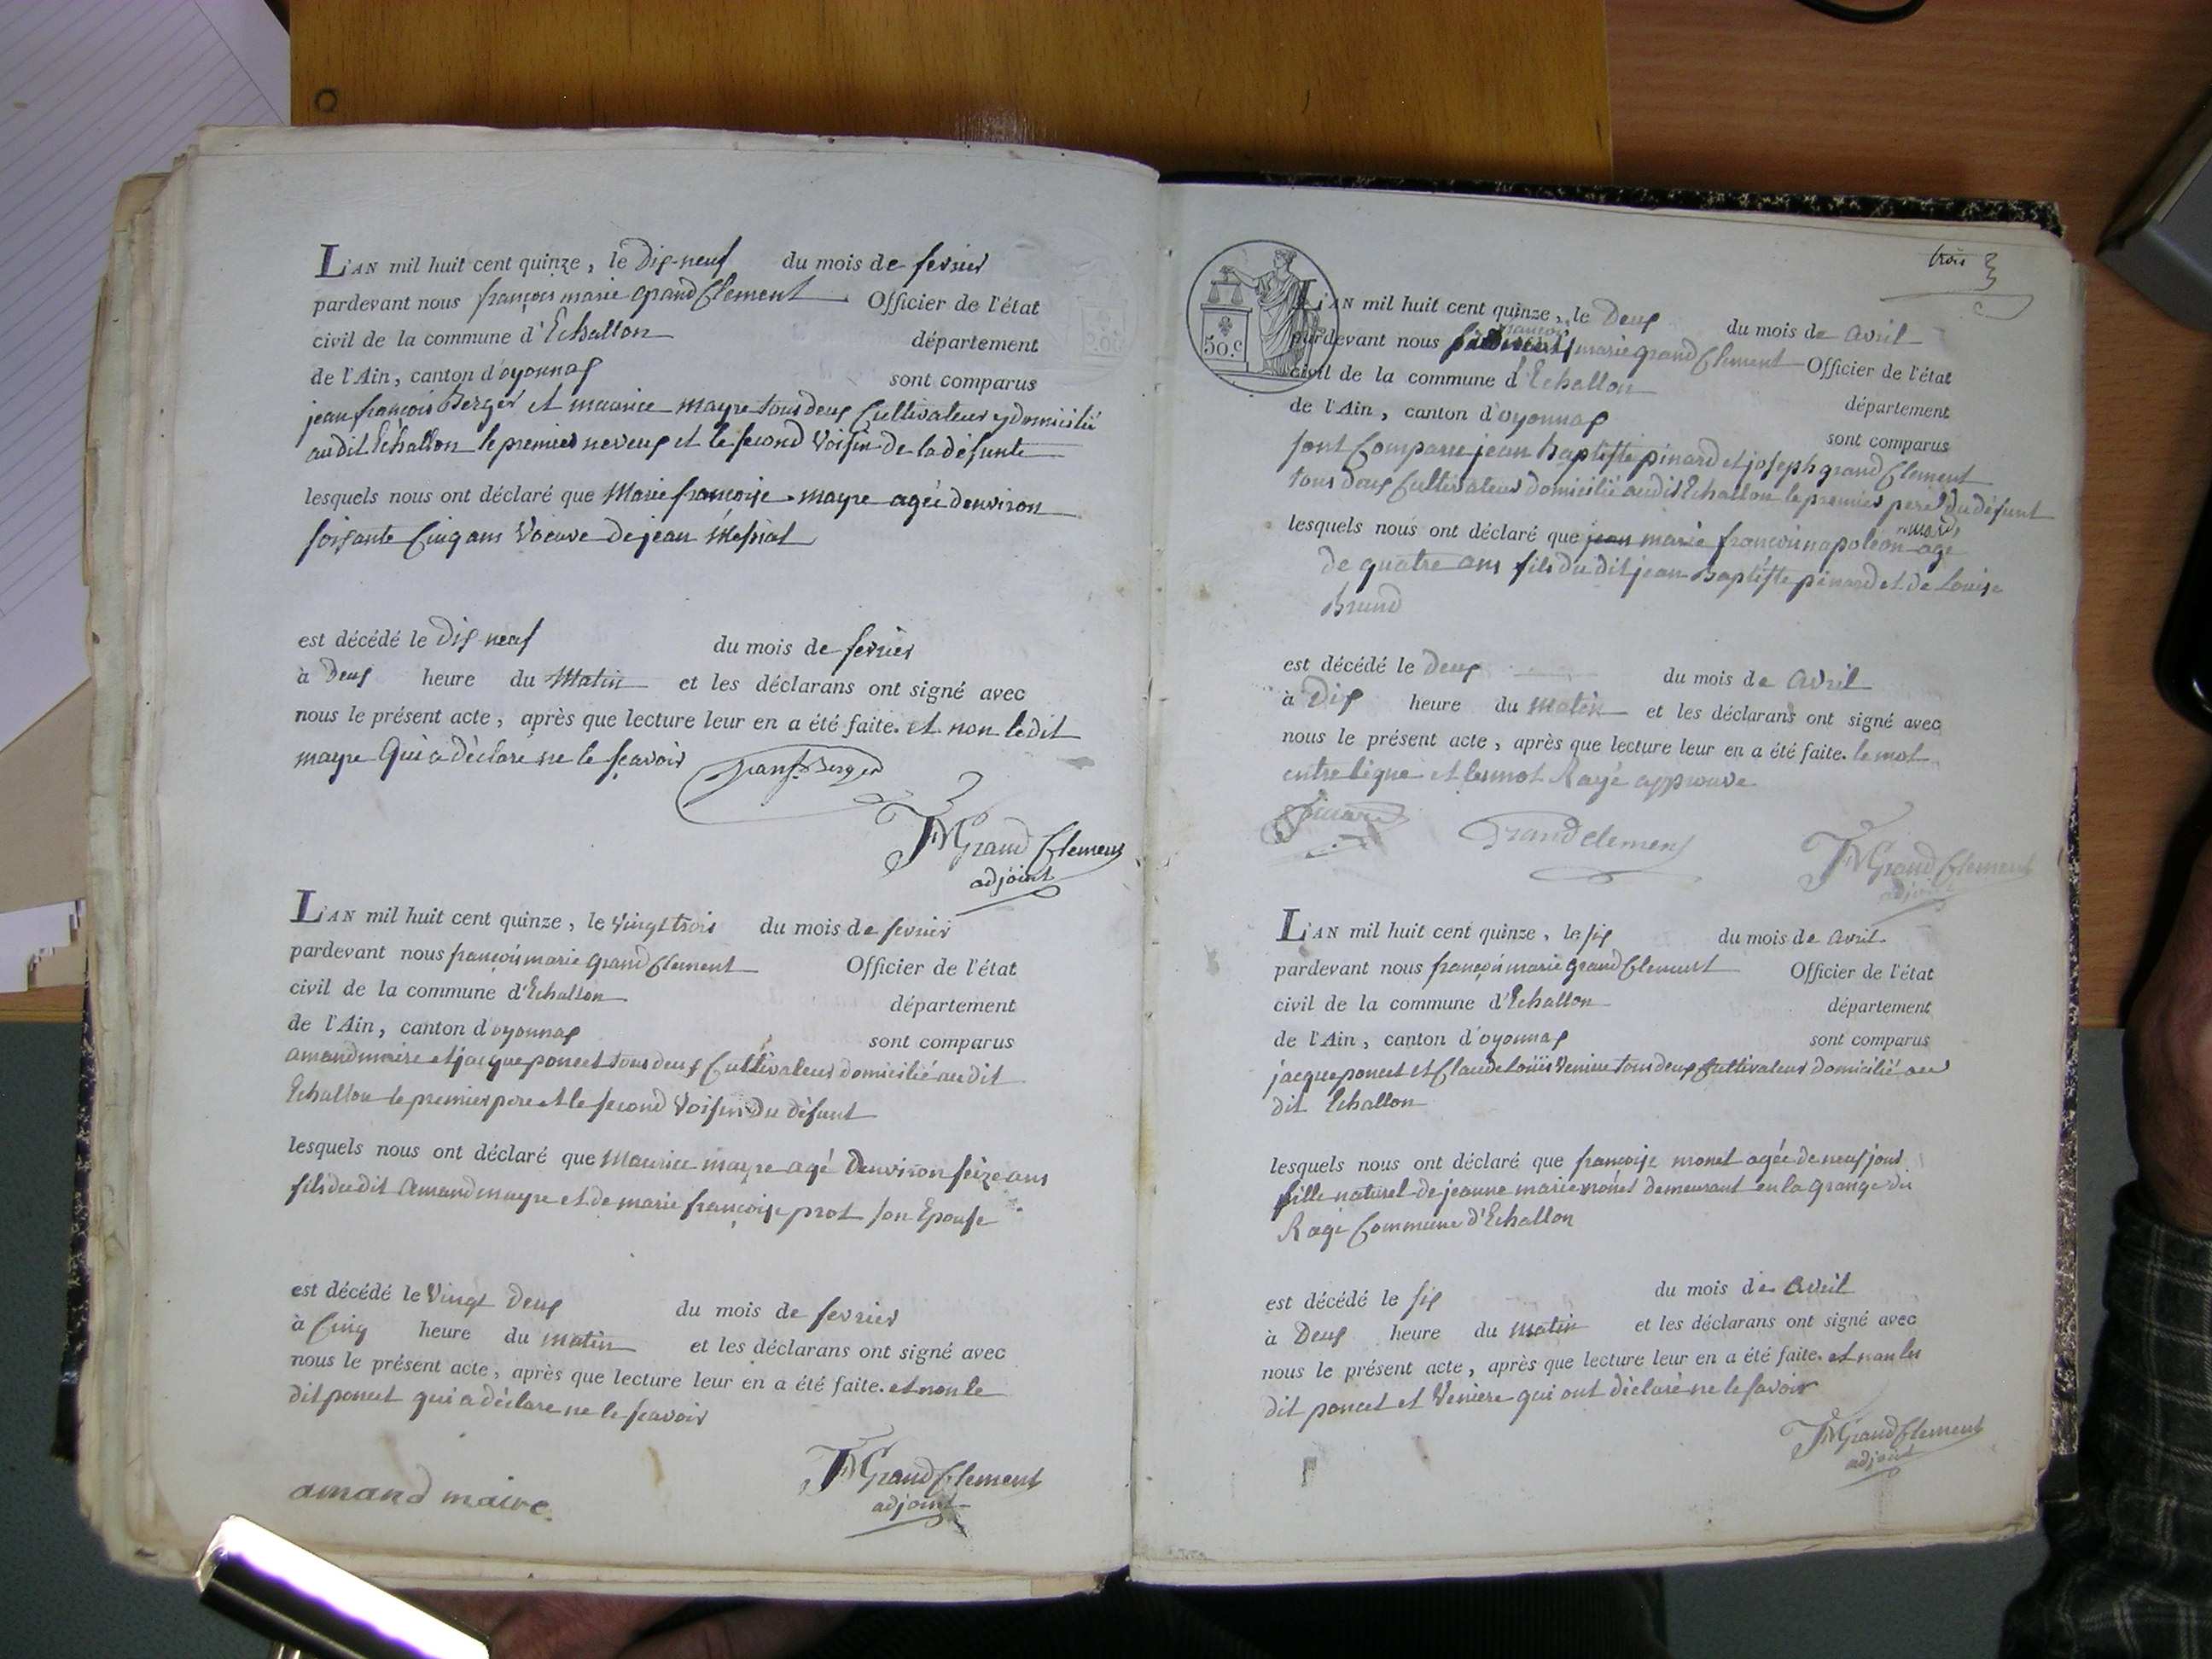 L'AN mil huit cent quinze, le Dix-neuf du mois de fevrier
pardevant nous françois marie grand Clement Officier de l'état
civil de la commune d'Echallon département
de l'Ain, canton d'oyonnax sont comparus
jean françois Berger et maurice mayre tous deux Cultivateur y domicilié
audit Echallon le premier neveux et le second Voisin de la défunte
lesquels nous ont déclaré que Marie françoise mayre agée denviron
soixante Cinq ans Voeuve de jean Messiat
est décédé le Dix neuf du mois de fevrier
à Deux heure du Matin et les déclarans ont signé avec
nous le présent acte, après que lecture leur en a été faite. et non ledit
mayre Qui a déclaré ne le sçavoir
Jean f. Berger
FM Grand Clement
adjoint
L'AN mil huit cent quinze, le Vingt trois du mois de fevrier
pardevant nous françois marie grand Clement Officier de l'état
civil de la commune d'Echallon département
de l'Ain, canton d'oyonnax sont comparus
amand maire et jacque poncet tous deux Cultivateur domicilié audit
Echallon le premier pere et le second Voisin du défunt
lesquels nous ont déclaré que Maurice mayre agé Denviron seize ans
fils dudit Amand mayre et de marie françoise prot son Epouse
est décédé le Vingt Deux du mois de fevrier
à Cinq heure du matin et les déclarans ont signé avec
nous le présent acte, après que lecture leur en a été faite. et non le
dit poncet qui a déclare ne le sçavoir
amand maire.
FM Grand Clement
adjoint
trois 3
50.c
L'AN mil huit cent quinze, le Deux du mois de Avril
françois
pardevant nous marie grand Clement Officier de l'état
civil de la commune d'Echallon département
de l'Ain, canton d'oyonnax sont comparus
sont Comparu jean baptiste pinard et joseph grand Clement
tous deux Cultivateur domicilié audit Echallon le premier pere du défunt
lesquels nous ont déclaré que jean marie françois napoléon agé
de quatre ans fils du dit jean Baptiste pinard et de Louise
brund
est décédé le Deux du mois de Avril
à Dix heure du Matin et les déclarans ont signé avec
nous le présent acte, après que lecture leur en a été faite. le mot
entre ligne et les mot Rayé approuve
Pinard
Grand clement
FM Grand Clement
adjoint
L'AN mil huit cent quinze, le six du mois de Avril
pardevant nous françois marie grand Clement Officier de l'état
civil de la commune d'Echallon département
de l'Ain, canton d'oyonnax sont comparus
jacque poncet et Claude Louis Veniere tous deux Cultivateur domicilié au
dit Echallon
lesquels nous ont déclaré que françoise monet agée de neuf jour
fille naturel de jeanne marie monet demeurant en la grange du
Ragé Commune d'Echallon
est décédé le six du mois de Avril
à Deux heure du Matin et les déclarans ont signé avec
nous le présent acte, après que lecture leur en a été faite. et non les
dit poncet et Veniere qui ont déclaré ne le savoir
FM Grand Clement
adjoint